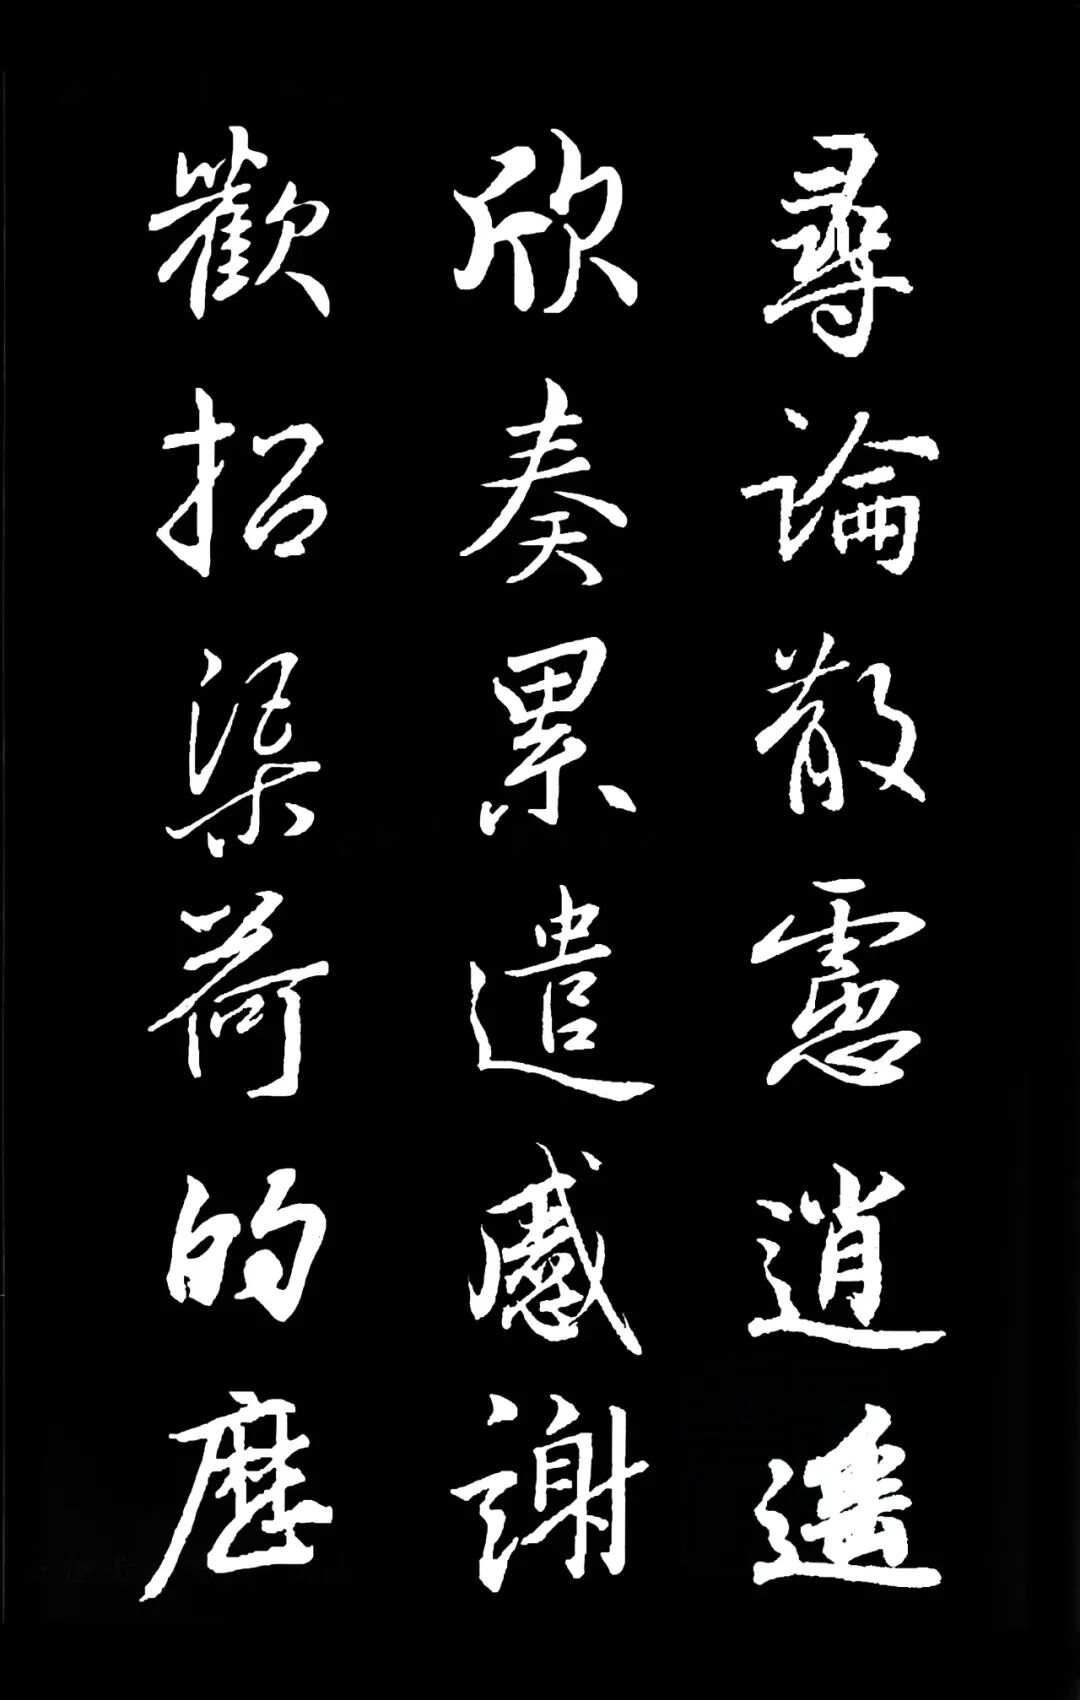 尋論散慮逍遥
欣奏累遣慼謝
歡招渠荷的歷